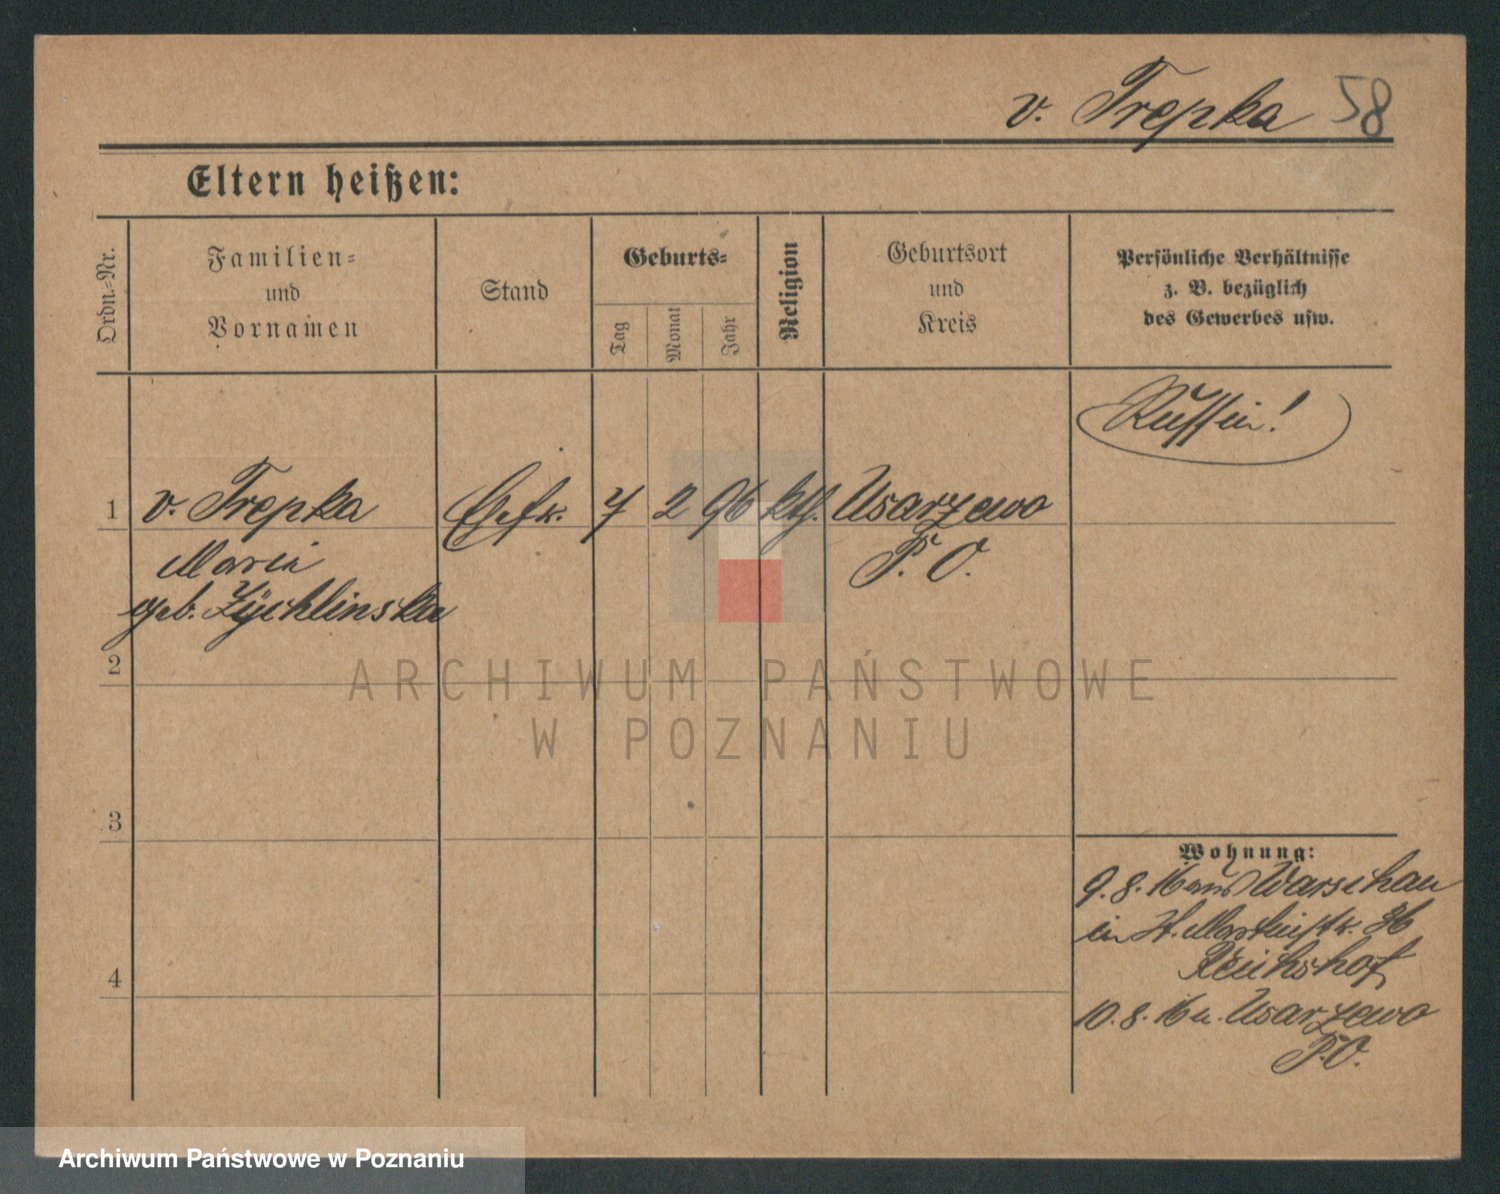 v. Trepka 58
Eltern heißen:
Ordn.=Nr.
Familien=
und
Vornamen
Stand
Geburts=
Tag
Monat
Jahr
Religion
Geburtsort
und
Kreis
Persönliche Verhältnisse
z. B. bezüglich
des Gewerbes usw.
Russin!
1 v. Trepka Ehefr. 7 2 96 kth. Usarzewo
Maria P. O.
geb. Zÿchlinska
2
ARCHIWUM PAŃSTWOWE
W POZNANIU
3
Wohnung:
9.8.16 aus Warschau
in St. Martinstr. 36
Reichshof
4
10.8.16 n. Usarzewo
P.O.
Archiwum Państwowe w Poznaniu